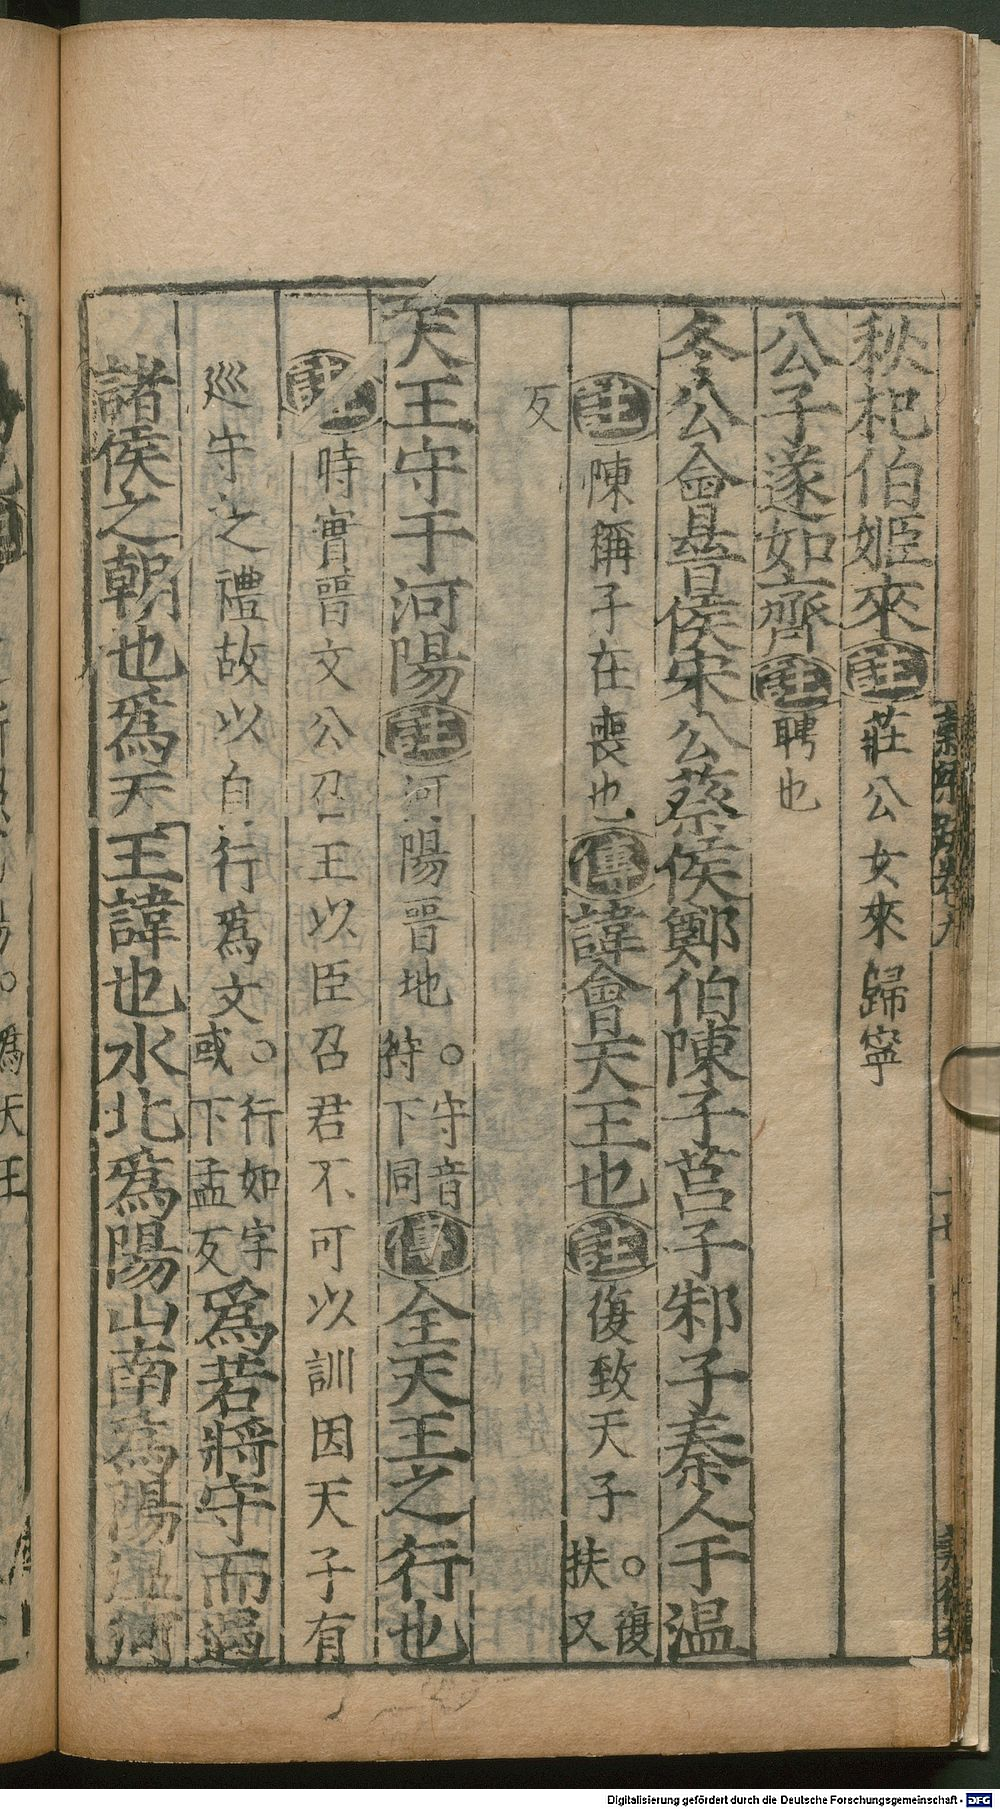 秋杞伯姬來註莊公女來歸寧
公子遂如齊註聘也
冬公會晉侯宋公蔡侯鄭伯陳子莒子邾子秦人于温
註陳稱子在喪也傳諱會天王也註復致天子○復扶又
反
天王守于河陽註河陽晉地○守音狩下同傳全天王之行也
註時實晉文公召王以臣召君不可以訓因天子有
巡守之禮故以自行爲文○行如字或下孟反爲若將守而遇
諸侯之朝也爲天王諱也水北爲陽山南爲陽温河
Digitalisierung gefördert durch die Deutsche Forschungsgemeinschaft - DFG